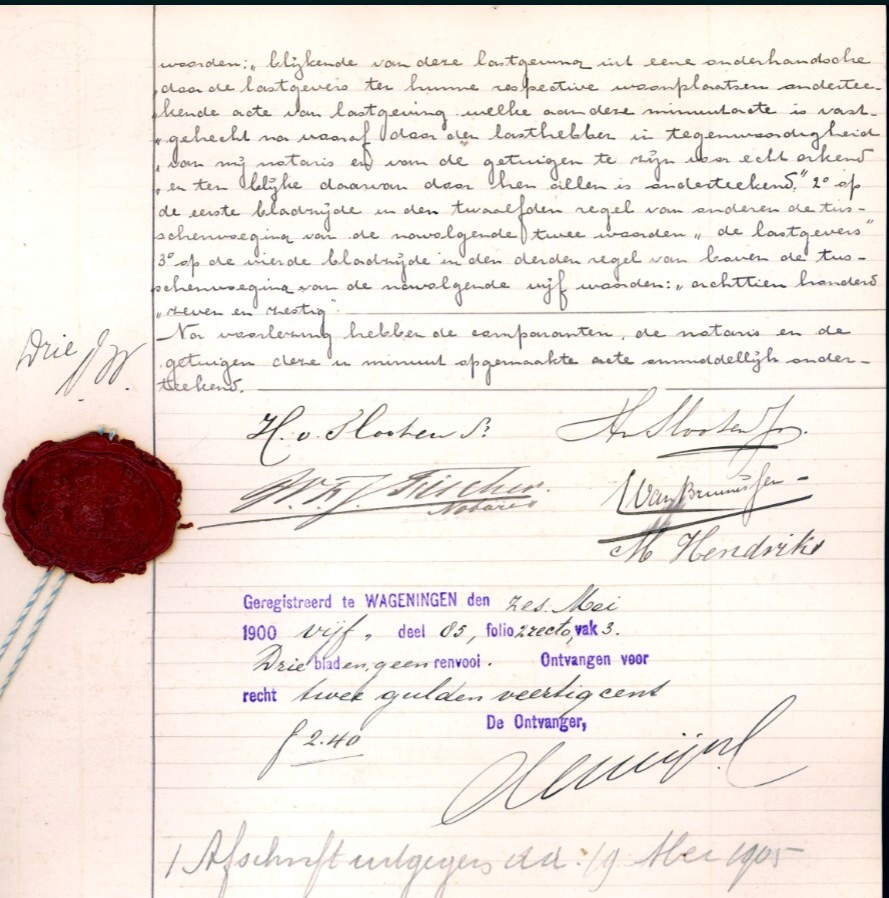 woorden: „ blijkende van deze lastgeving uit eene onderhandsche
door de lastgevers ter hunne respective woonplaatsen ondertee-
„kende acte van lastgeving welke aan deze minuutacte is vast-
„gehecht na vooraf door den lasthebber in tegenwoordigheid
„van mij notaris en van de getuigen te zijn voor echt erkend
„en ten blijke daarvan door hen allen is onderteekend." 2° op
de eerste bladzijde in den twaalfden regel van onderen de tus-
schenvoeging van de navolgende twee woorden „ de lastgevers"
3° op de vierde bladzijde in den derden regel van boven de tus-
schenvoeging van de navolgende vijf woorden: „ achttien honderd
„zeven en zestig"
Na voorlezing hebben de comparanten, de notaris en de
getuigen deze in minuut opgemaakte acte onmiddellijk onder-
teekend.
Drie
H. v. Slooten Sr.
H v Slooten Jr.
Fischer.
Notaris
M Hendriks
Geregistreerd te WAGENINGEN den zes Mei
1900 vijf, deel 85, folio 2 recto, vak 3.
Drie bladen, geen renvooi. Ontvangen voor
recht twee gulden veertig cent
f 2.40 De Ontvanger,
1 Afschrift uitgegeven dd. 19 Mei 1905